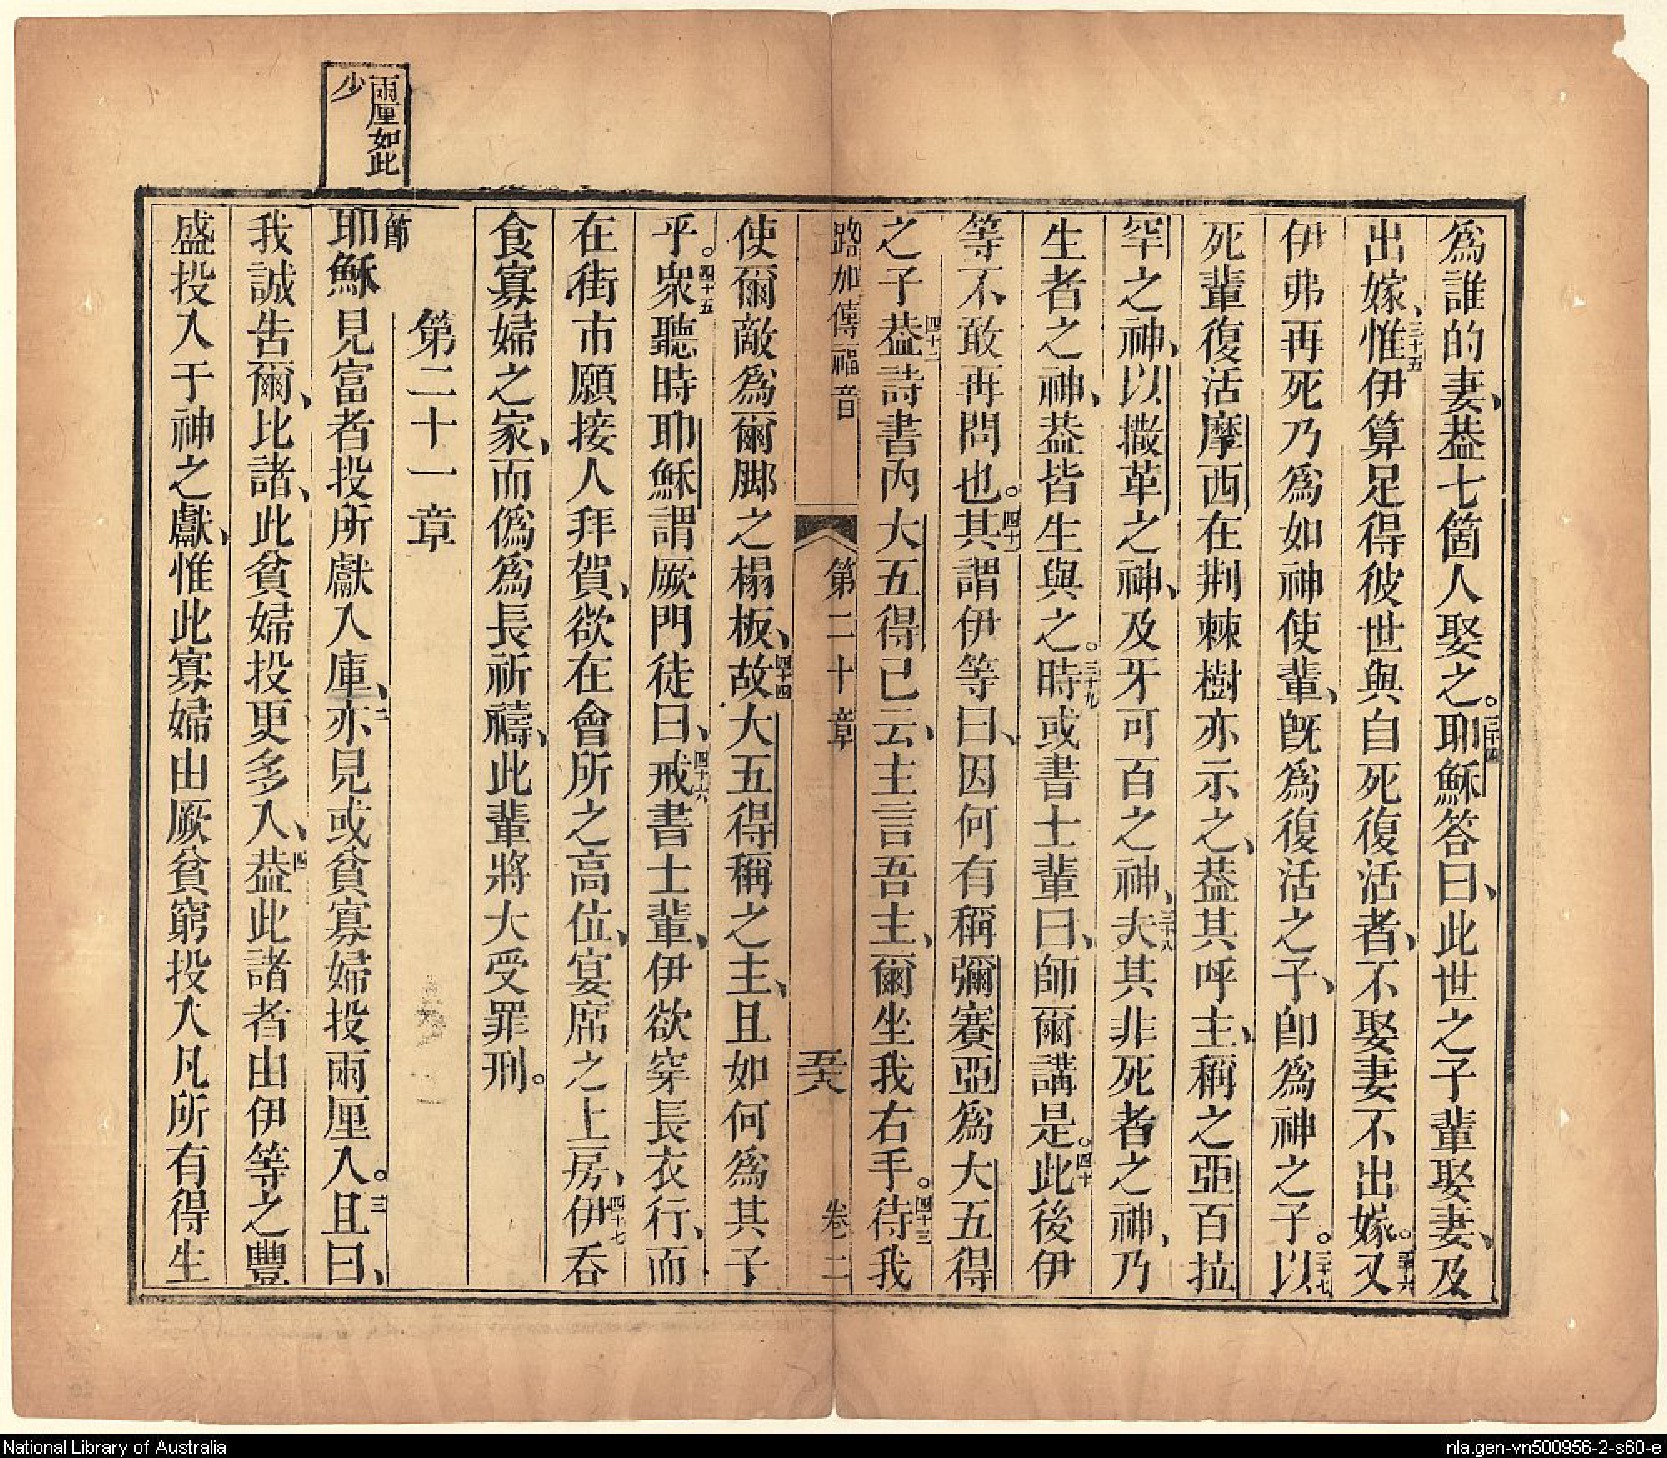 兩厘如此
少
為誰的妻、葢七箇人娶之。三十四耶穌答曰、此世之子輩娶妻、及
出嫁、三十五惟伊算足得彼世與自死復活者、不娶妻不出嫁。三十六又
伊弗再死乃為如神使輩、旣為復活之子、卽為神之子。三十七以
死輩復活摩西在荆棘樹亦示之、葢其呼主、稱之亞百拉
罕之神、以撒革之神、及牙可百之神、三十八夫其非死者之神、乃
生者之神、葢皆生與之。三十九時或書士輩曰、師爾講是。四十此後伊
等不敢再問也。四十一其謂伊等曰、因何有稱彌賽亞為大五得
之子四十二葢詩書內大五得已云、主言吾主、爾坐我右手。四十三待我
路加傳福音 第二十章 五十八 卷二
使爾敵為爾脚之榻板、四十四故大五得稱之主、且如何為其子
乎。四十五衆聽時耶穌謂厥門徒曰、四十六戒書士輩、伊欲穿長衣行、而
在街市願接人拜賀、欲在會所之高位、宴席之上房、四十七伊吞
食寡婦之家、而偽為長祈禱、此輩將大受罪刑。
第二十一章
節耶穌見富者投所獻入庫、二亦見或貧寡婦投兩厘入。三且曰、
我誠告爾、比諸、此貧婦投更多入、四葢此諸者由伊等之豐
盛投入于神之獻、惟此寡婦由厥貧窮投入凡所有得生
National Library of Australia
nla.gen-vn500956-2-s60-e